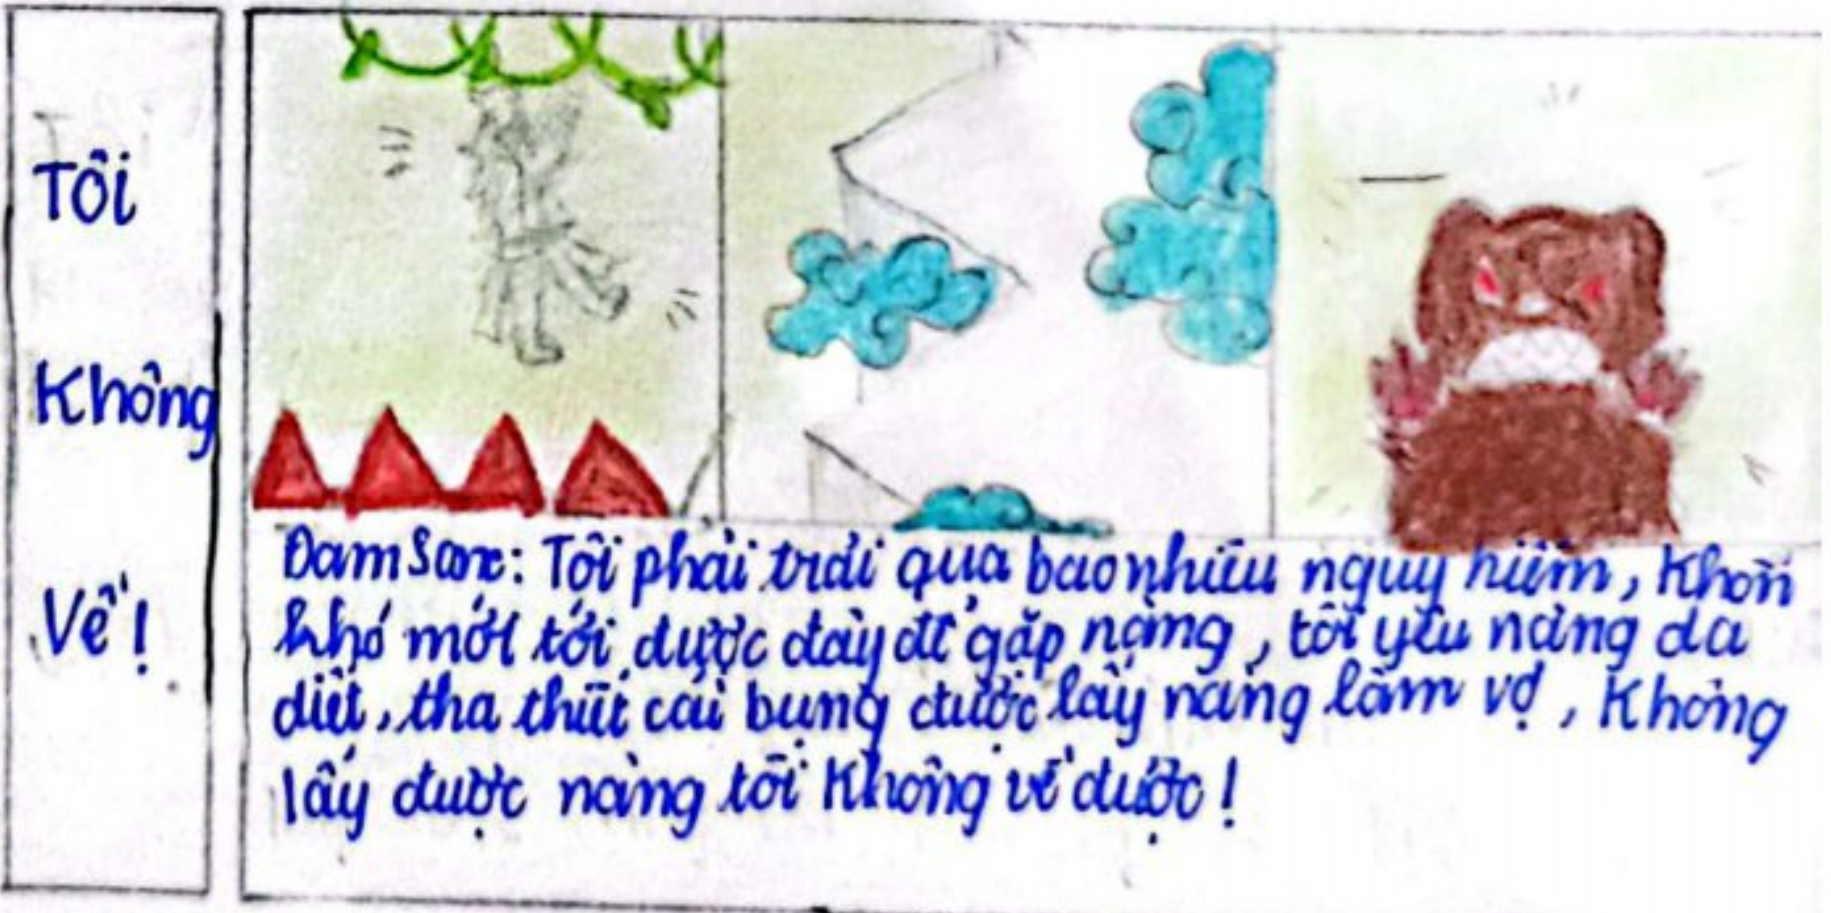 Tôi
Không
Về!
Đam Săn: Tôi phải trải qua bao nhiêu nguy hiểm, khốn
khó mới tới được đây để gặp nàng, tôi yêu nàng da
diết, tha thiết cái bụng được lấy nàng làm vợ, Không
lấy được nàng tôi Không về được!